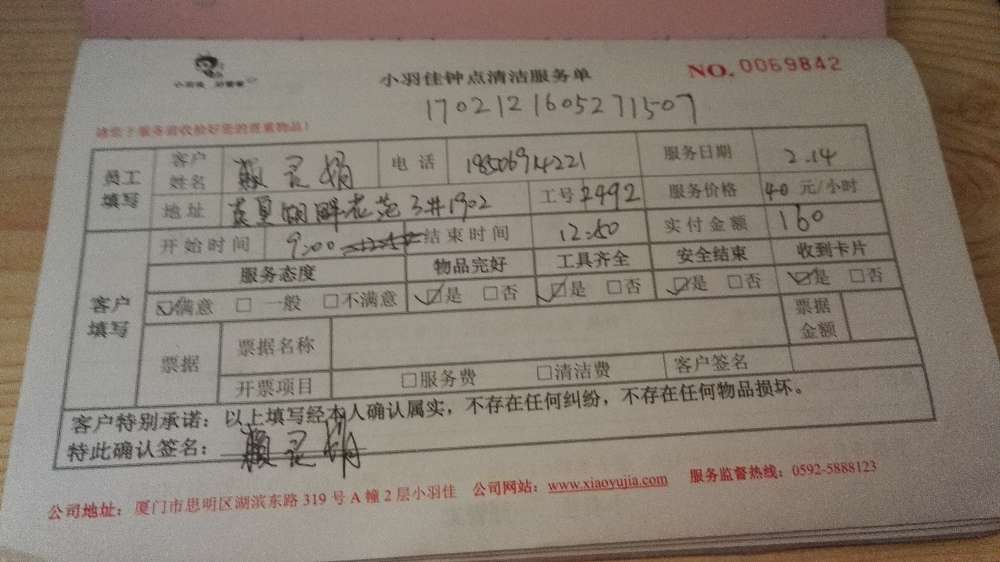 小羽佳钟点清洁服务单
NO. 0069842
小羽佳 好管家
1702121605271507
请您于服务前收检好您的贵重物品！
员工填写 客户姓名 赖灵娟 电话 18506914221 服务日期 2.14
地址 湖畔花范 1902 工号 2492 服务价格 40 元/小时
开始时间 9:00 结束时间 12:50 实付金额 160
客户填写 服务态度 物品完好 工具齐全 安全结束 收到卡片
☑满意 □一般 □不满意 ☑是 □否 ☑是 □否 ☑是 □否 ☑是 □否
票据 票据名称 票据金额
开票项目 □服务费 □清洁费 客户签名
客户特别承诺：以上填写经本人确认属实，不存在任何纠纷，不存在任何物品损坏。
特此确认签名：赖灵娟
公司地址：厦门市思明区湖滨东路 319 号 A 幢 2 层小羽佳 公司网站：www.xiaoyujia.com 服务监督热线：0592-5888123